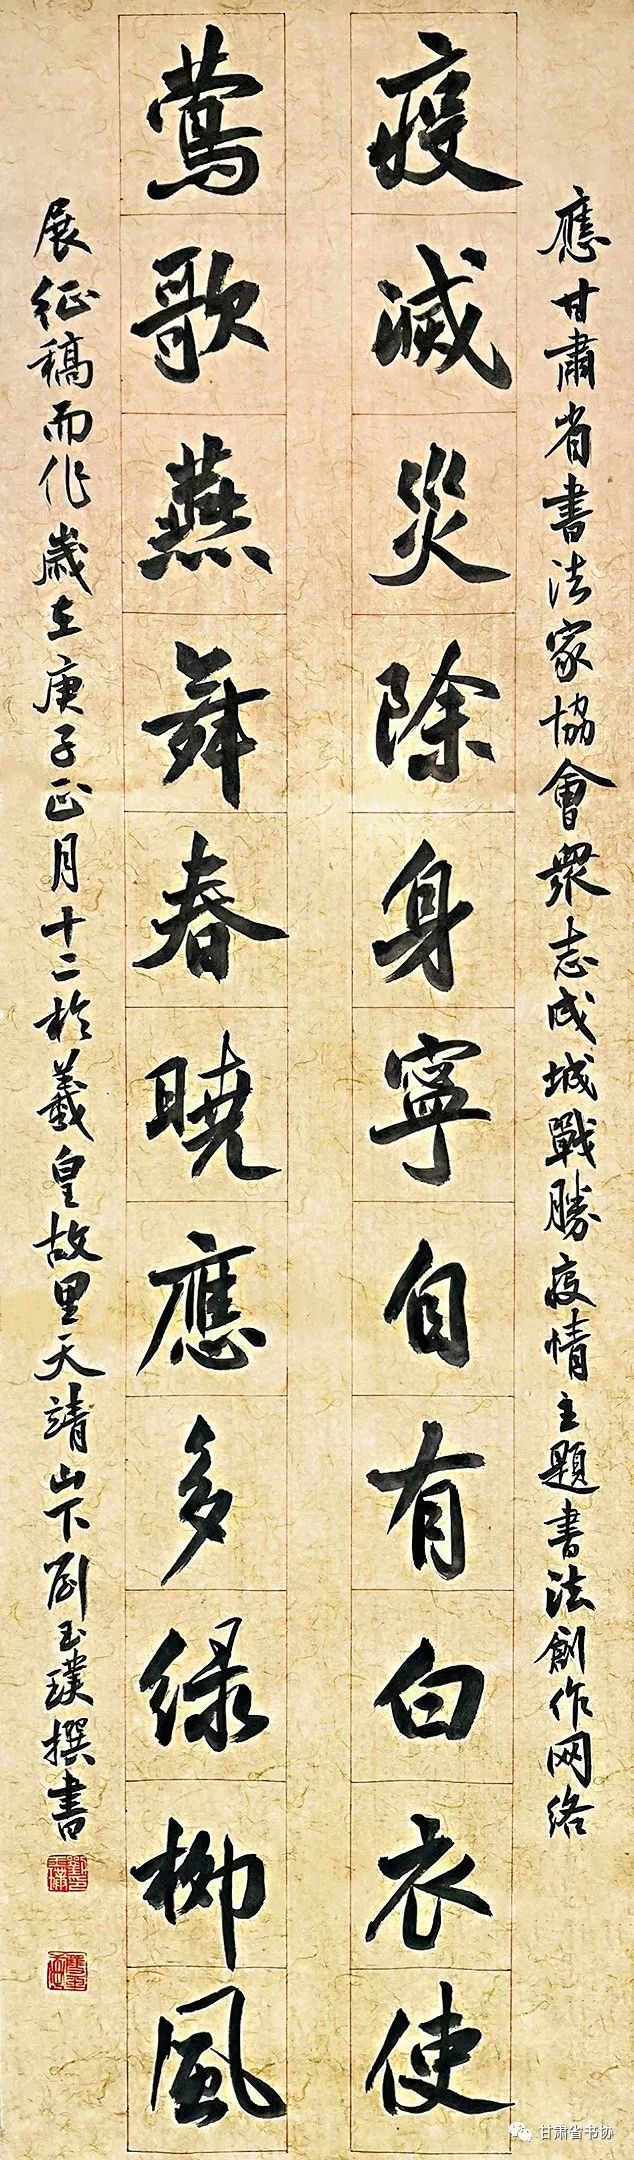 應甘肅省書法家協會衆志成城戰勝疫情主題書法創作网络
疫滅災除身寧自有白衣使
莺歌燕舞春曉應多绿柳風
展征稿而作歲在庚子正月十二於羲皇故里天靖山下劉玉璞撰書
甘肃省书协